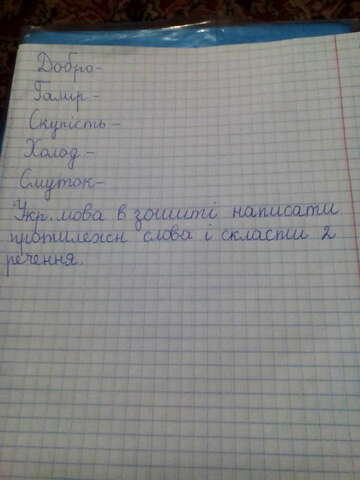 Добро-
Галір-
Скупість-
Холод-
Смуток-
Укр. мова в зошиті написати
протилежн слова і скласти 2
речення.